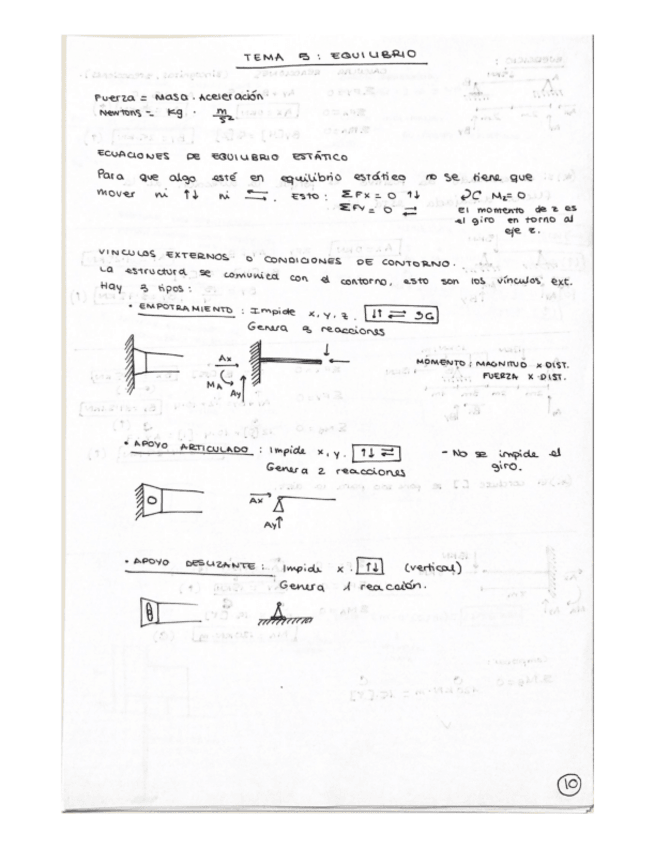 TEMA 5 : EQUILIBRIO
Fuerza = Masa · Aceleración
Newtons = kg · m/s²
ECUACIONES DE EQUILIBRIO ESTÁTICO
Para que algo esté en equilibrio estático no se tiene que
mover ni ↑↓ ni ⇌. ESTO: ΣFx = 0 ↑↓ Mz = 0
ΣFv = 0 ⇌ el momento de z es
el giro en torno al
eje z.
VINCULOS EXTERNOS O CONDICIONES DE CONTORNO.
La estructura se comunica con el contorno, esto son los vínculos ext.
Hay 3 tipos:
• EMPOTRAMIENTO : Impide x, y, z. ↓↑ ⇌
Genera 3 reacciones
Ax
MA
Ay
MOMENTO : MAGNITUD x DIST.
FUERZA x DIST.
• APOYO ARTICULADO : Impide x, y. ↑↓ ⇌ - No se impide el
giro.
Genera 2 reacciones
Ax
Ay
• APOYO DESLIZANTE : Impide x. ↑↓ (vertical)
Genera 1 reacción.
10